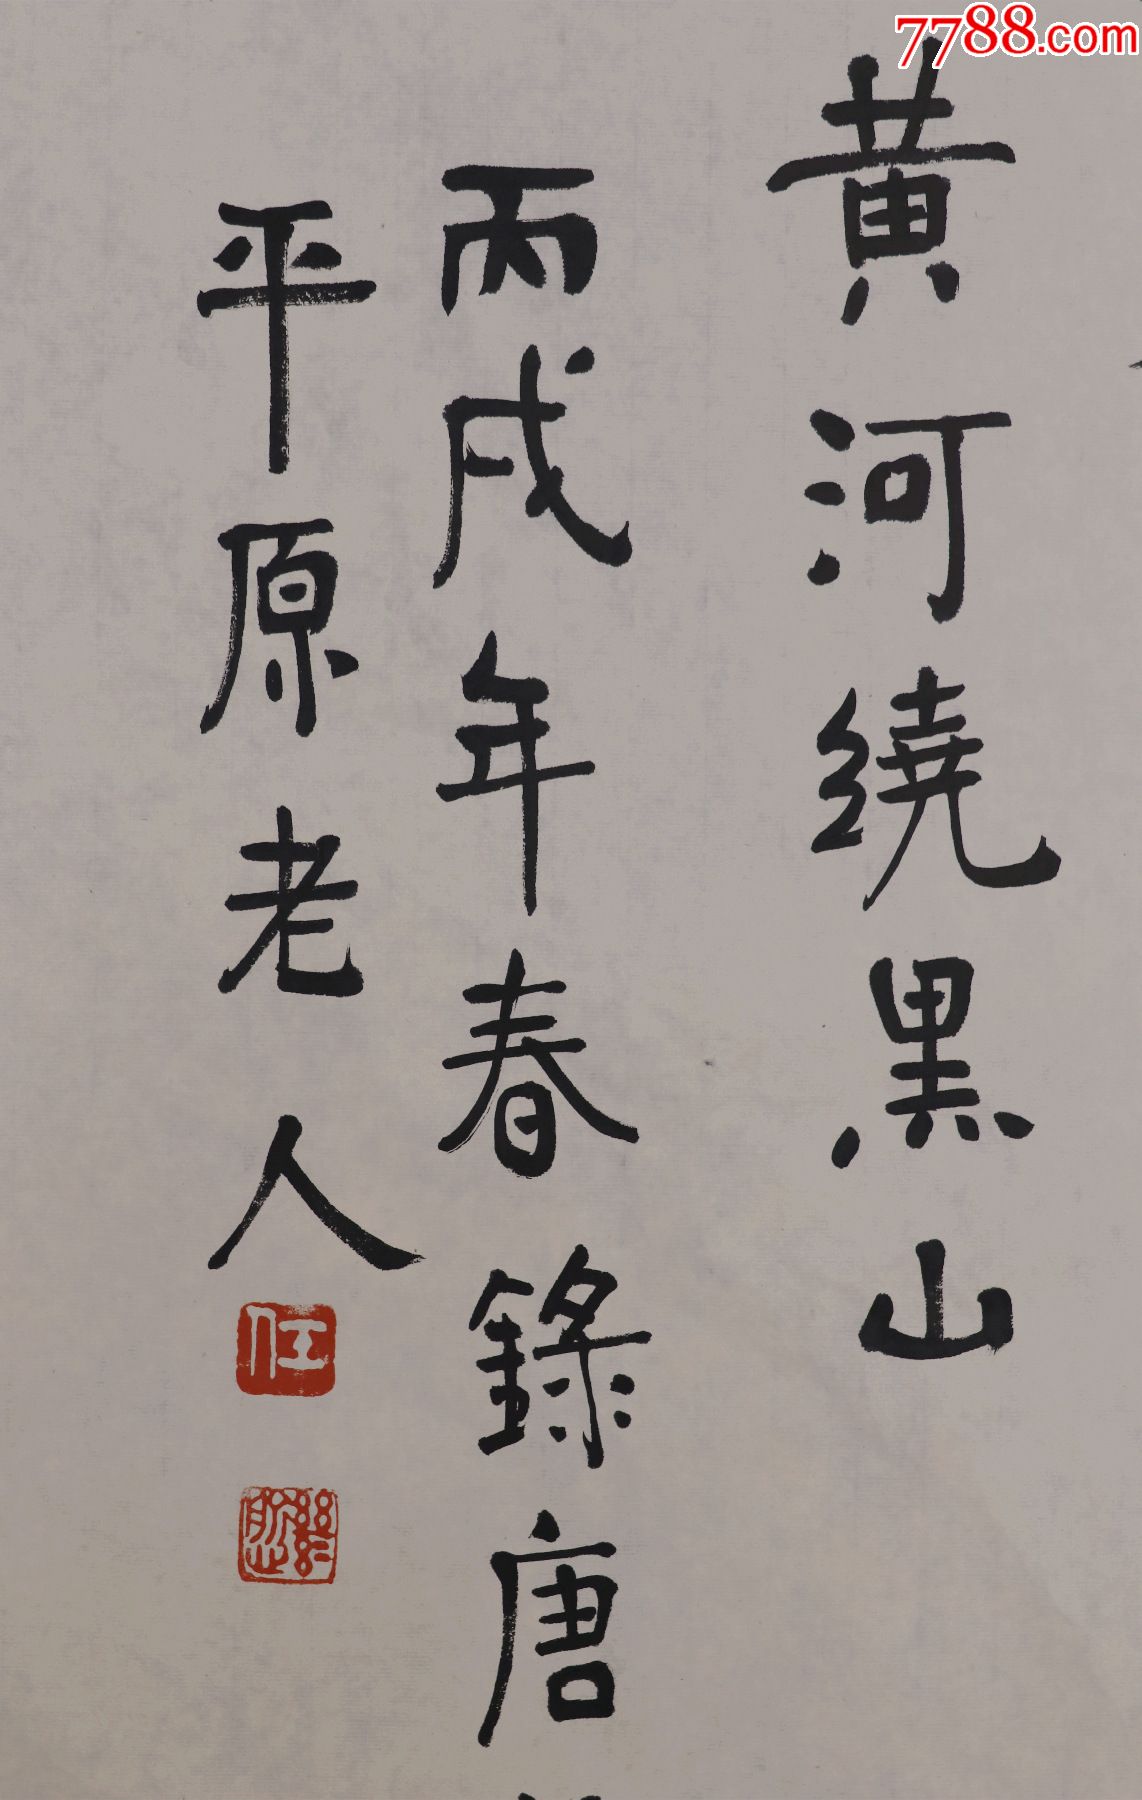 7788.com
黄河繞黑山
丙戌年春錄唐
平原老人
任